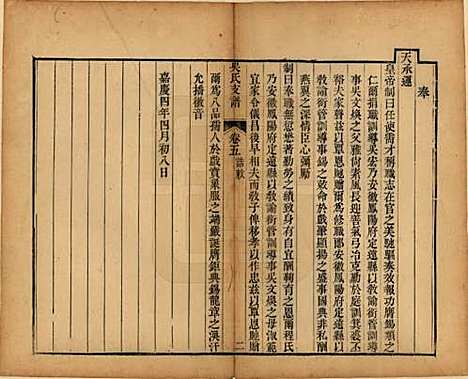 奉
天承運
皇帝制曰任使需才稱職志在官之美馳驅奏效報功膺錫類之
仁爾捐職訓導吳宏乃安徽鳳陽府定遠縣以教諭銜管訓導
事吳文煥之父雅尚素風長迎善氣弓冶克勤於庭訓箕裘不
裕夫家聲茲以覃恩貤贈爾為修職郎安徽鳳陽府定遠縣以
教諭銜管訓導錫之敕命於戲肇顯揚之盛事國典非私酬
燕翼之深情臣心彌勵
制曰奉職無愆懋著勤勞之績致身有自宜酬鞠育之恩爾程氏
乃安徽鳳陽府定遠縣以教諭銜管訓導事吳文煥之母淑範
宜家令儀昌後早相夫而教子俾移孝以作忠茲以覃恩貤贈
吳氏支譜
卷五
誥敕
二
爾為八品孺人於戲賁象服之端嚴誕膺鉅典錫龍章之渙汗
允播徽音
嘉慶四年四月初八日